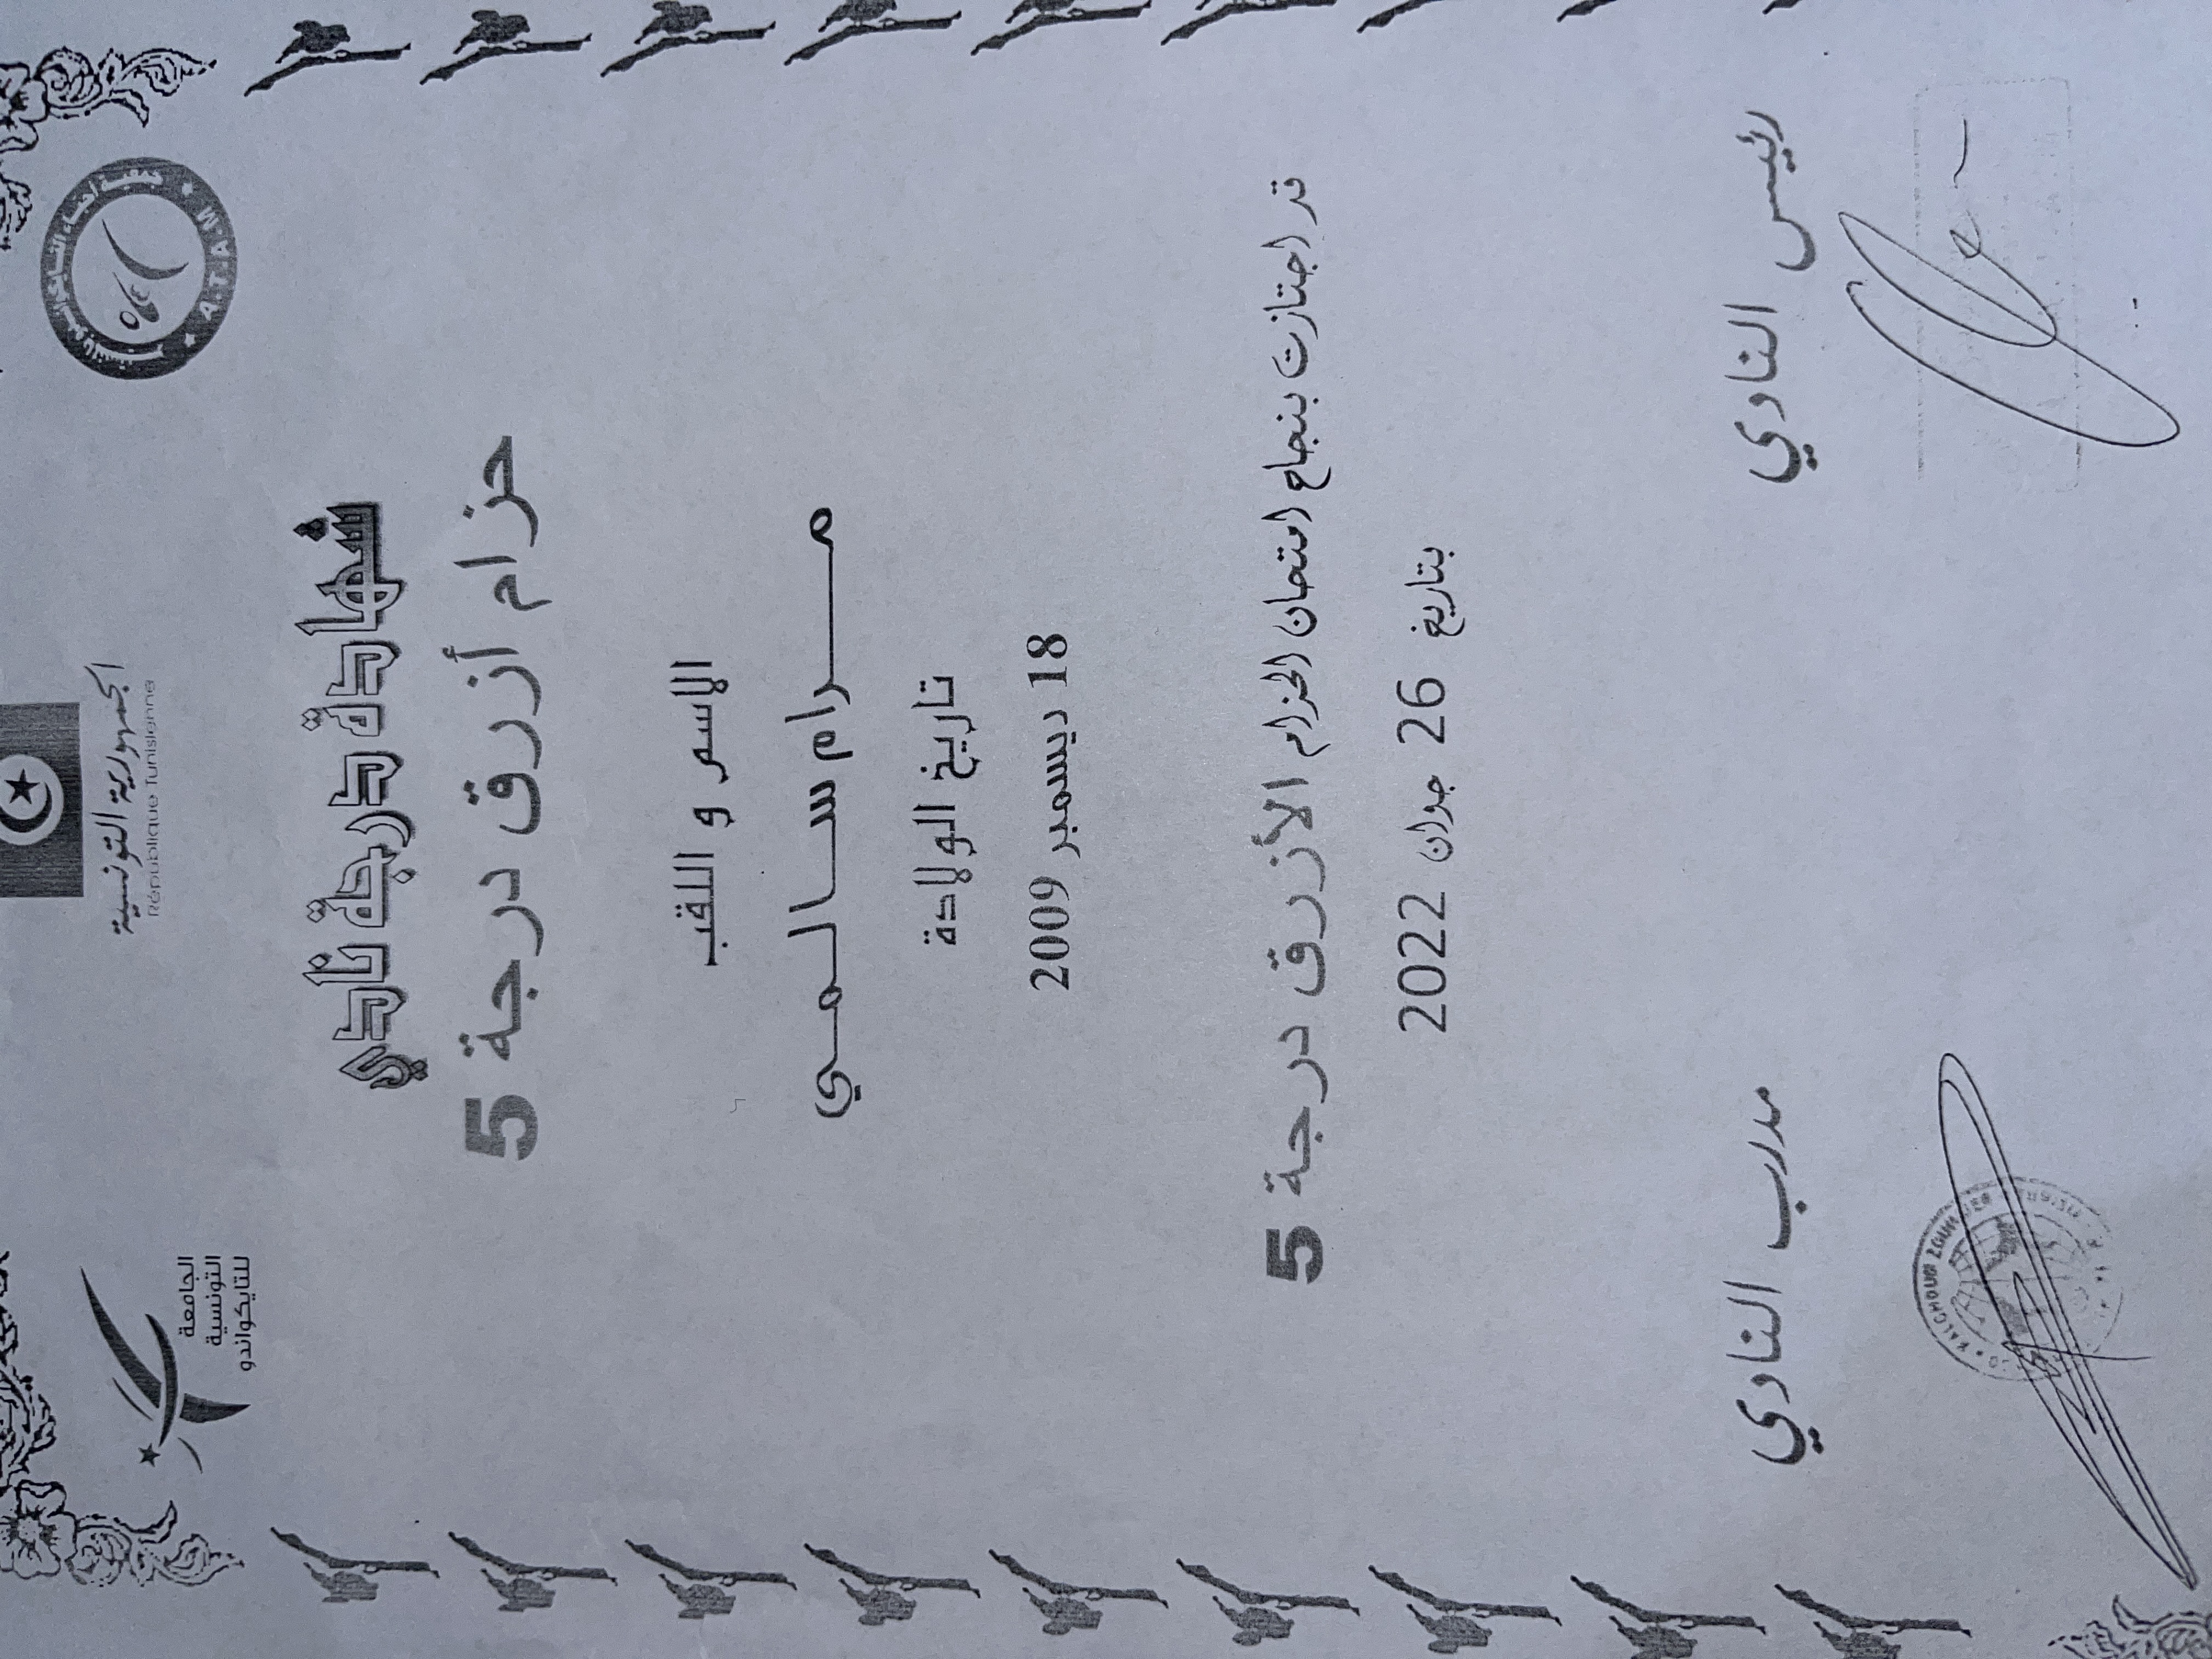 الجمهورية التونسية
République Tunisienne
جمعية أحباء التايكواندو
A.T.A.M
الجامعة
التونسية
للتايكواندو
شهادة درجة نادي
حزام أزرق درجة 5
الإسم و اللقب
مـــرام ســـالـــمـــي
تاريخ الولادة
18 ديسمبر 2009
قد اجتازت بنجاح امتحان الحزام الأزرق درجة 5
بتاريخ 26 جوان 2022
رئيس النادي
مدرب النادي